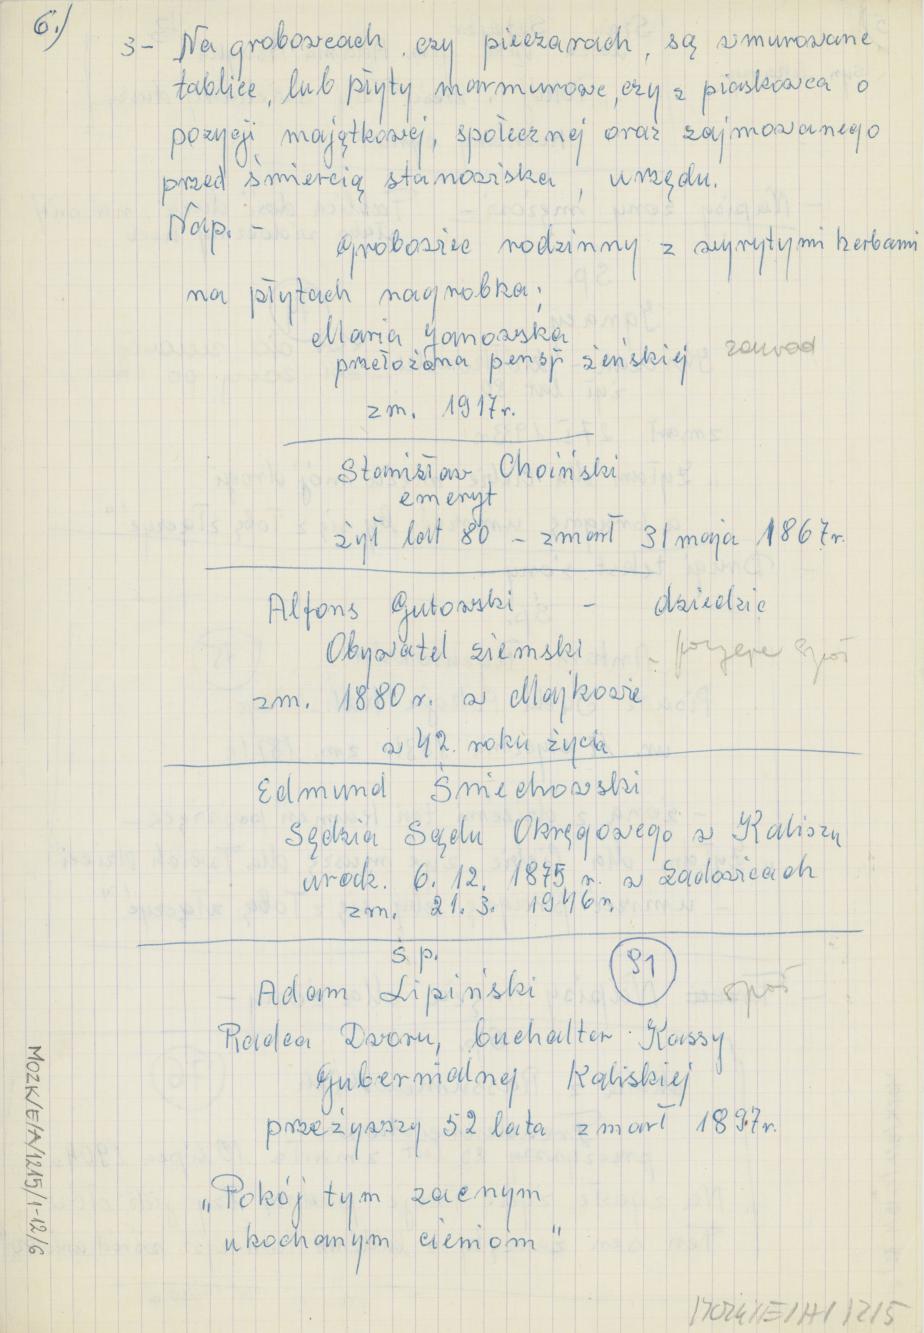 6.)
3- Na grobowcach, czy pieczarach, są wmurowane
tablice, lub płyty marmurowe, czy z piaskowca o
pozycji majątkowej, społecznej oraz zajmowanego
przed śmiercią stanowiska, urzędu.
Nap. -
Grobowiec rodzinny z wyrytymi herbami
na płytach nagrobka;
Maria Janowska
przełożona pensji żeńskiej zawód
zm. 1917r.
Stanisław Choiński
emeryt
żył lat 80 - zmarł 31 maja 1867r.
Alfons Gutowski - dziedzic
Obywatel ziemski
zm. 1880r. w Majkowie
w 42. roku życia
Edmund Śniechowski
Sędzia Sądu Okręgowego w Kaliszu
urodz. 6.12.1875 r. w Żadowicach
zm. 21.3. 1946r.
Śp.
Adam Lipiński 91 społ
Radca Dworu, buchalter Kassy
Gubernialnej Kaliskiej
przeżywszy 52 lata zmarł 1897r.
„Pokój tym zacnym
ukochanym cieniom"
MOZK/E/A/1215/1-12/6
MOZK/E/A/1215